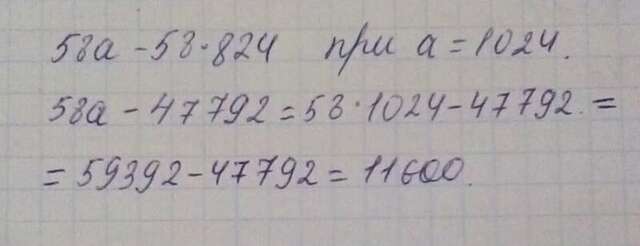 58a - 58·824 при a = 1024.
58a - 47792 = 58·1024 - 47792. =
= 59392 - 47792 = 11600.